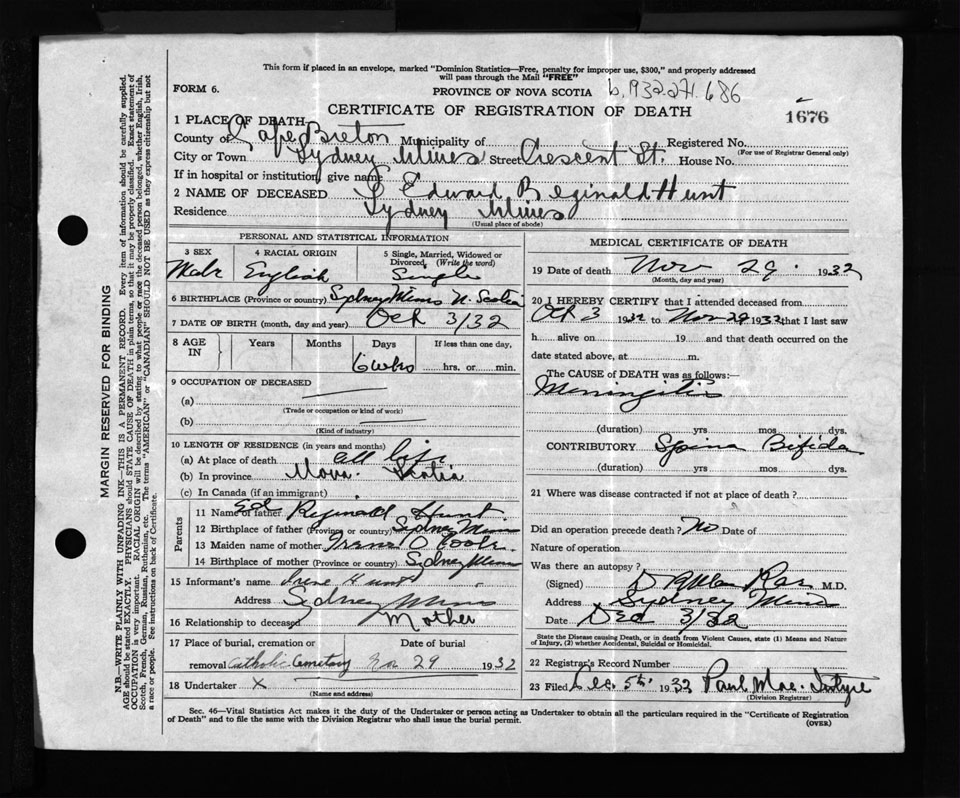 This form if placed in an envelope, marked "Dominion Statistics—Free, penalty for improper use, $300," and properly addressed
will pass through the Mail "FREE"
FORM 6.
PROVINCE OF NOVA SCOTIA b.932.271.686
CERTIFICATE OF REGISTRATION OF DEATH
1676
1 PLACE OF DEATH
County of Cape Breton Municipality of Registered No.
(For use of Registrar General only)
City or Town Sydney Mines Street Crescent St. House No.
If in hospital or institution give name
2 NAME OF DECEASED Edward Reginald Hunt
Residence Sydney Mines
(Usual place of abode)
PERSONAL AND STATISTICAL INFORMATION
3 SEX 4 RACIAL ORIGIN 5 Single, Married, Widowed or
Divorced, (Write the word)
Male English Single
6 BIRTHPLACE (Province or country) Sydney Mines N. Scotia
7 DATE OF BIRTH (month, day and year) Oct 3/32
8 AGE IN Years Months Days If less than one day,
6 wks hrs. or min.
9 OCCUPATION OF DECEASED
(a)
(Trade or occupation or kind of work)
(b)
(Kind of industry)
10 LENGTH OF RESIDENCE (in years and months)
(a) At place of death all life
(b) In province Nova Scotia
(c) In Canada (if an immigrant)
Parents
11 Name of father Ed Reginald Hunt
12 Birthplace of father (Province or country) Sydney Mines
13 Maiden name of mother Irene O Toole
14 Birthplace of mother (Province or country) Sydney Mines
15 Informant's name Irene Hunt
Address Sydney Mines
16 Relationship to deceased Mother
17 Place of burial, cremation or
removal Catholic Cemetary Nov 29 1932
18 Undertaker X
(Name and address)
MEDICAL CERTIFICATE OF DEATH
19 Date of death Nov 29 1932
(Month, day and year)
20 I HEREBY CERTIFY that I attended deceased from
Oct 3 1932 to Nov 29 1932 that I last saw
h alive on 19 and that death occurred on the
date stated above, at m.
The CAUSE OF DEATH was as follows:—
Meningitis
(duration) yrs mos. dys.
CONTRIBUTORY Spina Bifida
(duration) yrs mos. dys.
21 Where was disease contracted if not at place of death?
Did an operation precede death? No Date of
Nature of operation
Was there an autopsy?
(Signed) M.D.
Address Sydney Mines
Date Dec 3/32
State the Disease causing Death, or in death from Violent Causes, state (1) Means and Nature
of Injury, (2) whether Accidental, Suicidal or Homicidal.
22 Registrar's Record Number
23 Filed Dec. 5th 1932 Paul Mac Intyre
(Division Registrar)
Sec. 46—Vital Statistics Act makes it the duty of the Undertaker or person acting as Undertaker to obtain all the particulars required in the "Certificate of Registration
of Death" and to file the same with the Division Registrar who shall issue the burial permit.
(OVER)
MARGIN RESERVED FOR BINDING
N.B.—WRITE PLAINLY WITH UNFADING INK—THIS IS A PERMANENT RECORD. Every item of information should be carefully supplied.
AGE should be stated EXACTLY. PHYSICIANS should STATE CAUSE OF DEATH in plain terms, so that it may be properly classified. Exact statement of
OCCUPATION is very important. RACIAL ORIGIN will be described by stating to what people or race the deceased person belonged, whether English, Irish,
Scotch, French, German, Russian, Ruthenian, etc. The terms "AMERICAN" or "CANADIAN" SHOULD NOT BE USED as they express citizenship but not
a race or people. See instructions on back of Certificate.